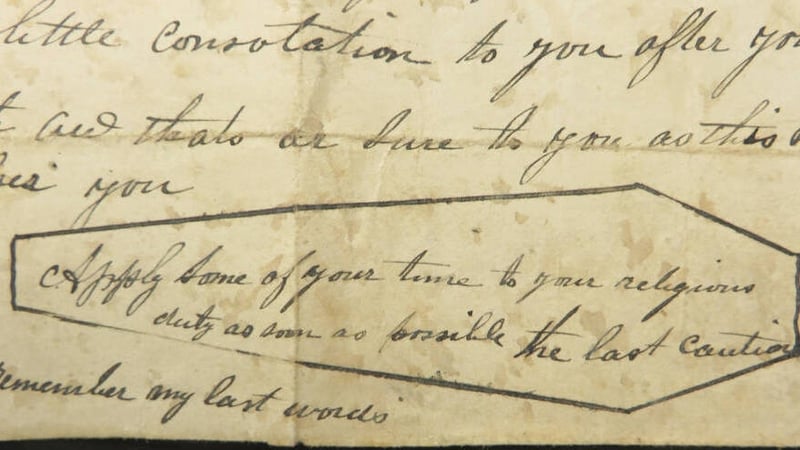 little consotation to you after you
and thats as sure to you as this
you
Apply some of your time to your religious
duty as soon as possible the last caution
remember my last words